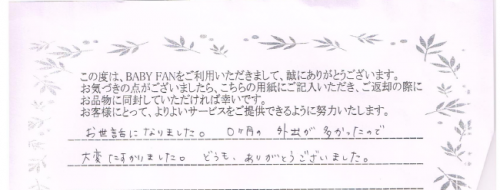 この度は、BABY FANをご利用いただきまして、誠にありがとうございます。
お気づきの点がございましたら、こちらの用紙にご記入いただき、ご返却の際に
お品物に同封していただければ幸いです。
お客様にとって、よりよいサービスをご提供できるように努力いたします。
お世話になりました。 0ヶ月の 外出が 多かったので
大変 助かりました。 どうも、ありがとうございました。